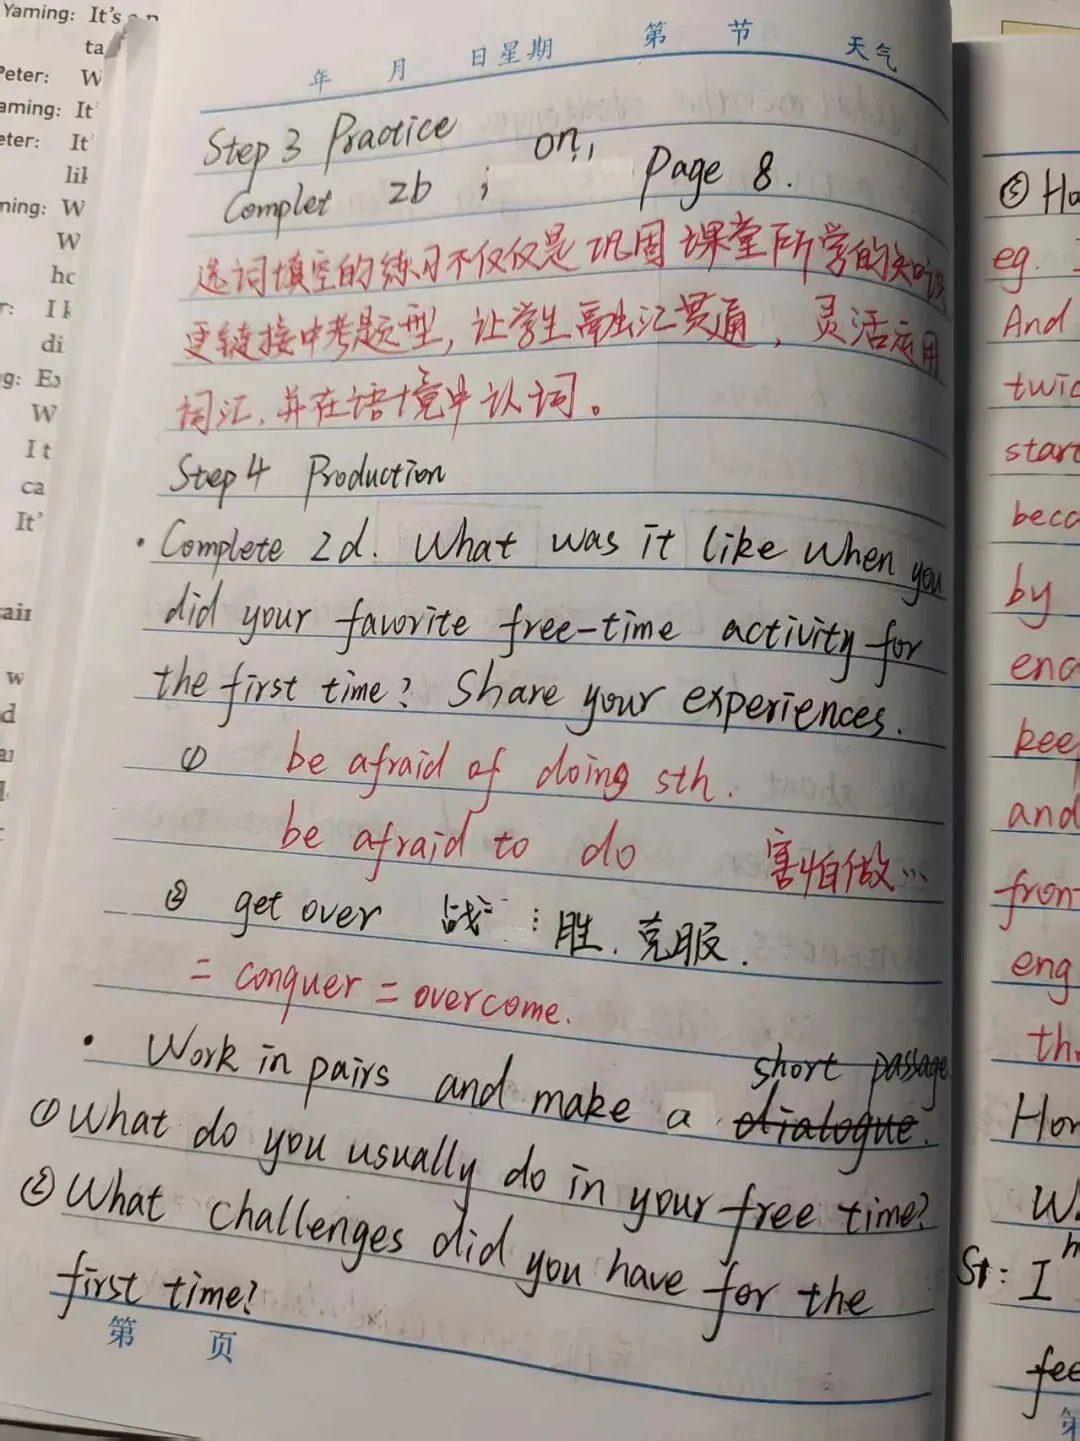 Yaming: It's a
ta
Peter: W
aming: It'
eter: It'
lik
ning: W
W
ho
r: I k
di
g: Ex
W
I t
ca
It'
w
d
年 月 日星期 第 节 天气
Step 3 Practice
Complet 2b ; on, Page 8.
选词填空的练习不仅仅是巩固课堂所学的知识
更链接中考题型, 让学生融汇贯通, 灵活运用
词汇, 并在语境中认词。
Step4 Production
· Complete 2d. What was it like when you
did your favorite free-time activity for
the first time? Share your experiences.
① be afraid of doing sth.
be afraid to do 害怕做…
② get over 战 胜. 克服.
= conquer = overcome.
· Work in pairs and make a dialogue. short passage
① What do you usually do in your free time?
② What challenges did you have for the
first time?
第 页
⑤ Ho
eg.
And
twic
start
beca
by
enc
keep
and
fron
eng
th
Hor
W
St: I
fee
第